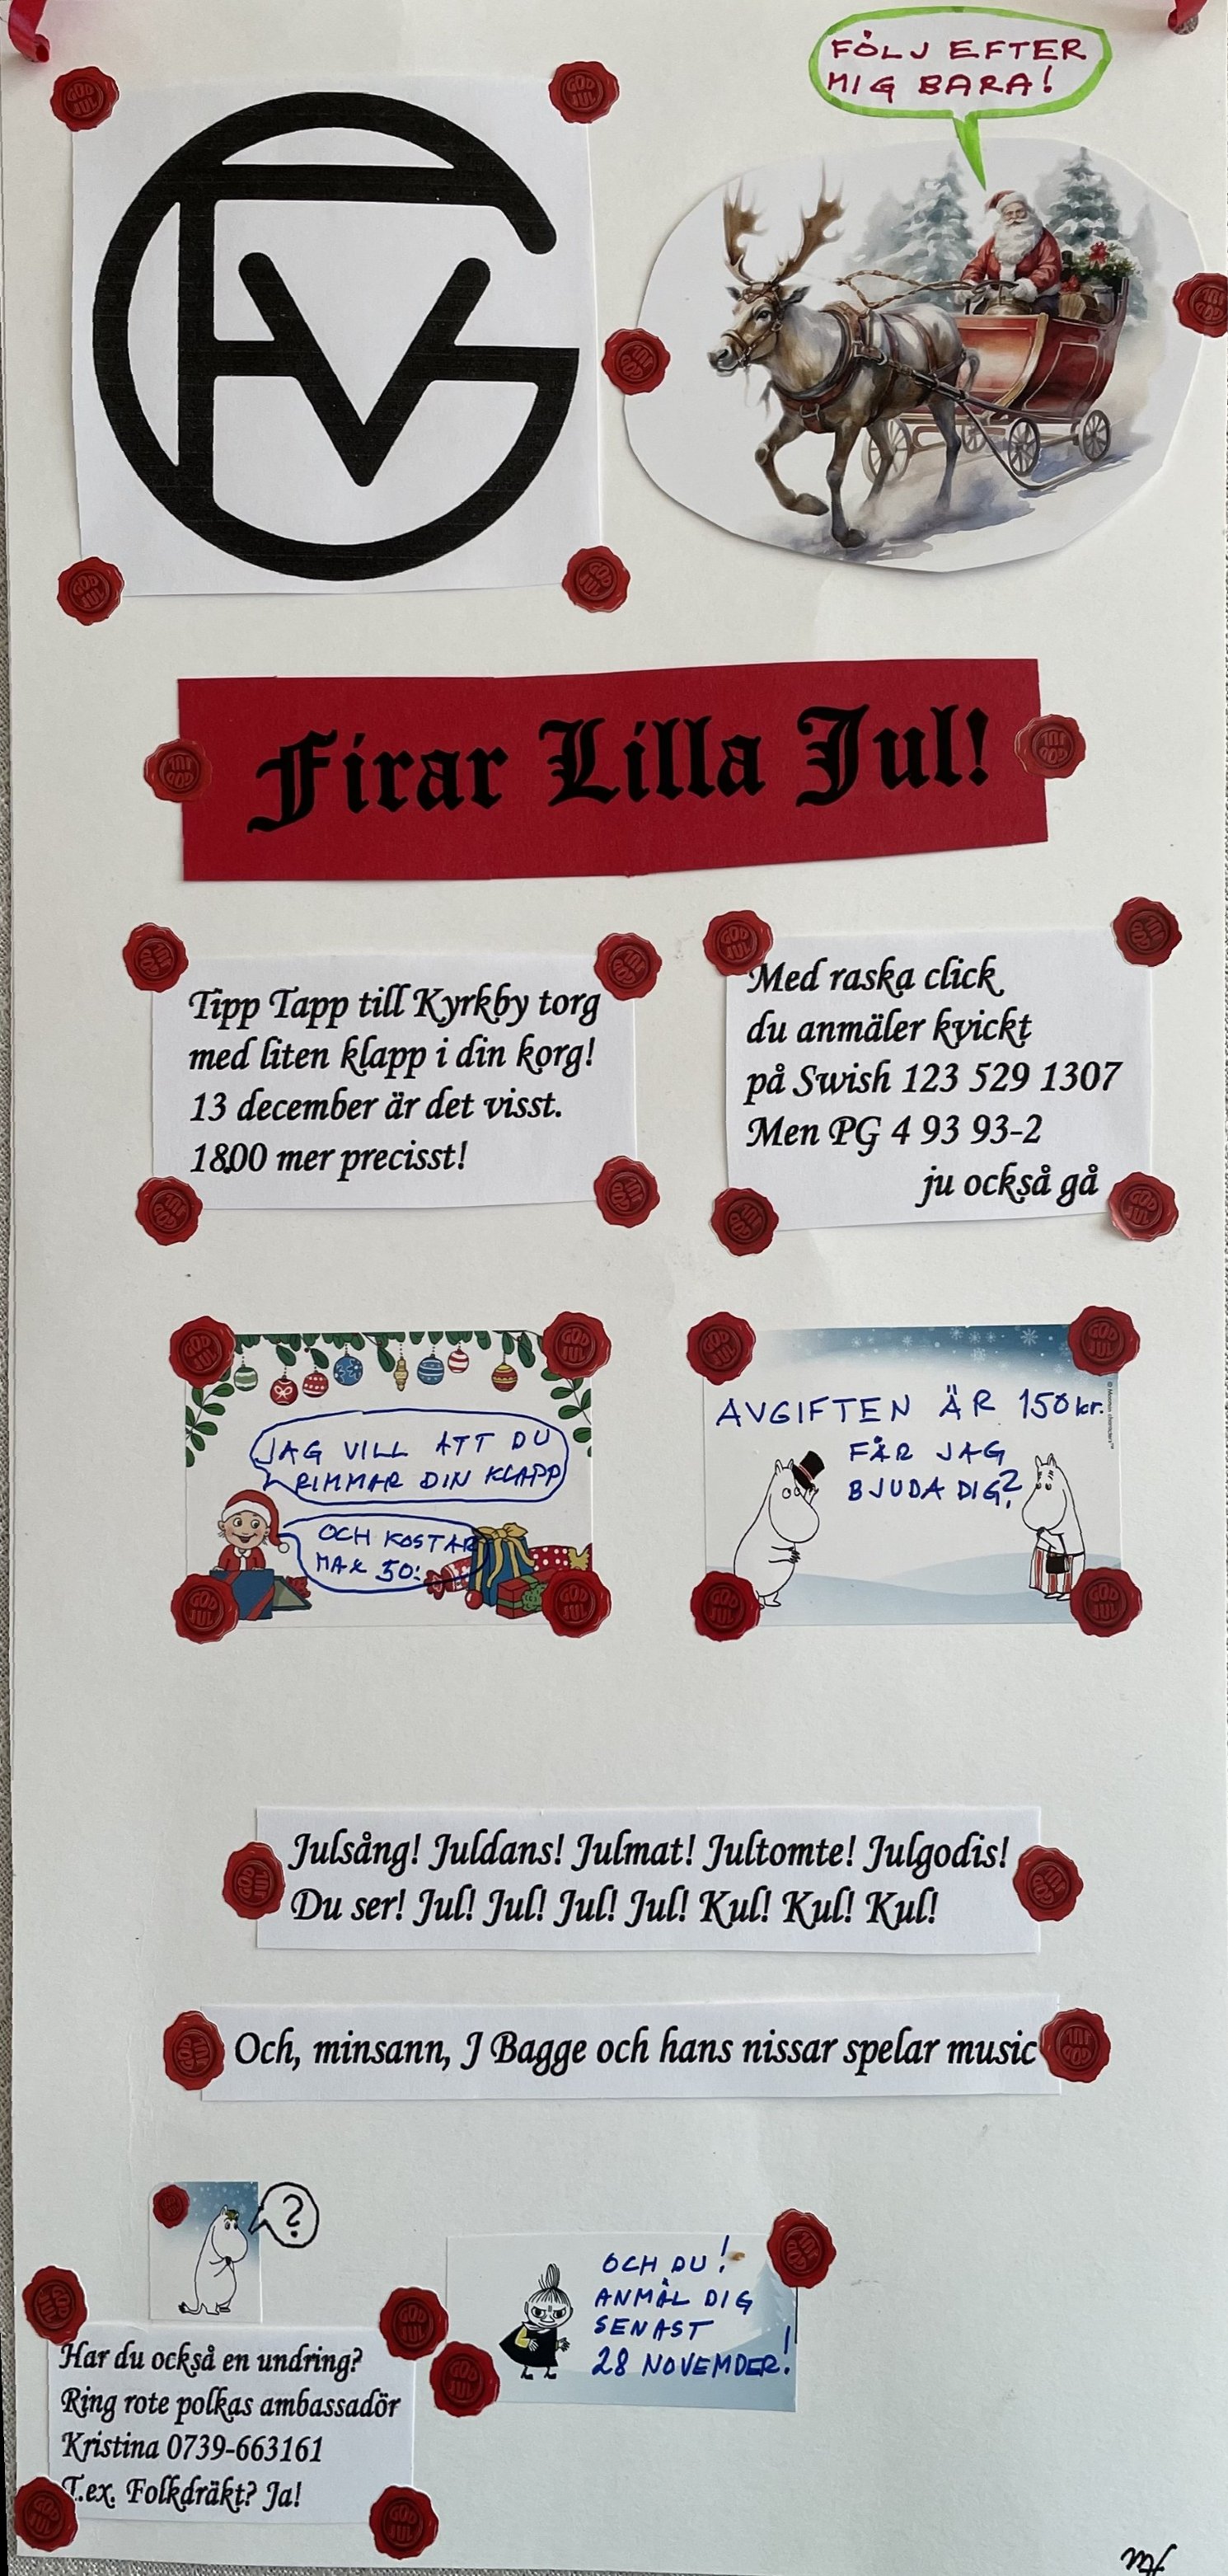 GFV
FÖLJ EFTER
MIG BARA!
Firar Lilla Jul!
Tipp Tapp till Kyrkby torg
med liten klapp i din korg!
13 december är det visst.
18.00 mer precisst!
Med raska click
du anmäler kvickt
på Swish 123 529 1307
Men PG 4 93 93-2
ju också gå
JAG VILL ATT DU
RIMMAR DIN KLAPP
OCH KOSTAR
MAX 50:-
AVGIFTEN ÄR 150 kr.
FÅR JAG
BJUDA DIG?
Julsång! Juldans! Julmat! Jultomte! Julgodis!
Du ser! Jul! Jul! Jul! Jul! Kul! Kul! Kul!
Och, minsann, J Bagge och hans nissar spelar music
?
Har du också en undring?
Ring rote polkas ambassadör
Kristina 0739-663161
T.ex. Folkdräkt? Ja!
OCH DU!
ANMÄL DIG
SENAST
28 NOVEMDER!
GOD JUL